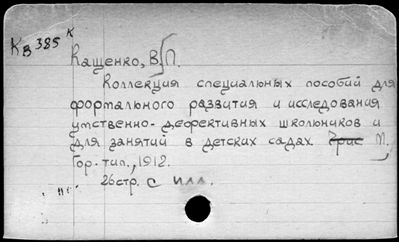 Кв 385 к
Кащенко, В.П.
Коллекция специальных пособий для
формального развития и исследования
умственно-дефективных школьников и
для занятий в детских садах. М.,
Гор. тип., 1912.
26стр. с илл.